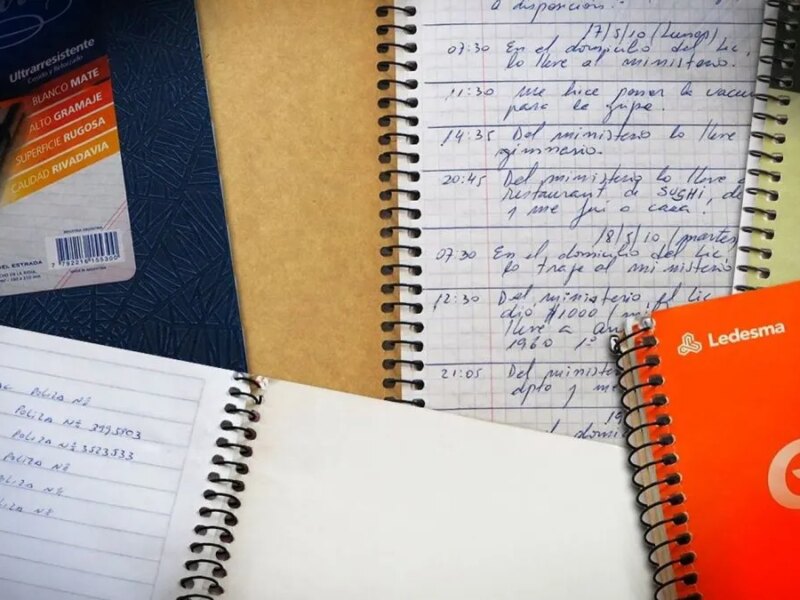 Ultrarresistente
Cosido y Reforzado
BLANCO MATE
ALTO GRAMAJE
SUPERFICIE RUGOSA
CALIDAD RIVADAVIA
INDUSTRIA ARGENTINA
EL ESTRADA
7 792216 155300
a disposición.
17/5/10 (Lunes)
07:30 En el domicilio del Lic,
lo lleve al ministerio.
11:30 me hice poner la vacu
para la gripe.
14:35 Del ministerio lo lleve
gimnasio.
20:45 Del ministerio lo lleve a
restaurant de SUSHI, de
y me fui a casa.
18/5/10 (martes
07:30 En el domicilio del Lic,
lo traje al ministerio
12:30 Del ministerio el Lic
dio $1000 (mi
lleve a
1960 1º
21:05 Del ministe
dpto y me
19
domi
Poliza Nº
Poliza Nº
Poliza Nº 3523533
Poliza Nº
Poliza Nº
oliza Nº
Ledesma